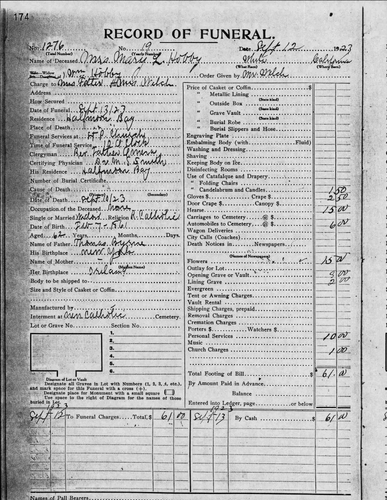 174
RECORD OF FUNERAL.
No. 1276 No. 19 Date Sept. 12 1923
(Total Number) (Yearly Number)
Name of Deceased Mrs. Marie L. Hobby White California
(What Race) (Where Born)
Wm Hobby Order Given by Mr. Welch
Charge to Mrs. Welch
Address
How Secured
Date of Funeral Sept 13/23
Residence Halfmoon Bay
Place of Death
Funeral Services at H.B. Church
Time of Funeral Service 10 A. Clock
Clergyman Rev. Father
Certifying Physician Smith
His Residence Halfmoon Bay
Number of Burial Certificate
Cause of Death
Date of Death Sept 10/23
Occupation of the Deceased None
Single or Married Widow Religion R. Catholic
Date of Birth Feb. 1861
Aged 62 Years Months, Days.
Name of Father Thomas Byrne
His Birthplace New York
Name of Mother
Her Birthplace Ireland
Body to be shipped to
Size and Style of Casket or Coffin
Manufactured by
Interment at New Catholic Cemetery.
Lot or Grave No. Section No.
Diagram of Lot or Vault
Designate all Graves in Lot with Numbers (1, 2, 3, 4, etc.),
and mark space for this Funeral with a cross (+).
Designate place for Monument with a small square
Use space to right of Diagram for the names of those
buried in Lot.
Price of Casket or Coffin
" Metallic Lining
(State kind)
" Outside Box
(State kind)
" Grave Vault
(State kind)
" Burial Robe
(State kind)
" Burial Slippers and Hose
Engraving Plate
Embalming Body (with Fluid)
Washing and Dressing
Shaving
Keeping Body on Ice
Disinfecting Rooms
Use of Catafalque and Drapery
" Folding Chairs
" Candelabrum and Candles 1.50
Gloves $ Crape $ 2.50
Hearse 15.00
Carriages to Cemetery @ $
Automobiles to Cemetery @ $ 6.00
Wagon Deliveries
City Calls (Coaches)
Death Notices in Newspapers
(Names of Newspapers)
Flowers 15.00
Outlay for Lot
Opening Grave or Vault 8.00
Lining Grave 2.00
Evergreen
Tent or Awning
Vault Rental
Shipping Charges, prepaid
Removal Charges
Cremation Charges
Porters $ Watchers $
Personal Services 10.00
Music
Church Charges 1.00
Total Footing of Bill $ 61.00
By Amount Paid in Advance
Balance
Entered into Ledger, page or below
1923 Sept 13 To Funeral Charges Total, $ 61 00
1923 Sept 13 By Cash $ 61.00
Names of Pall Bearers